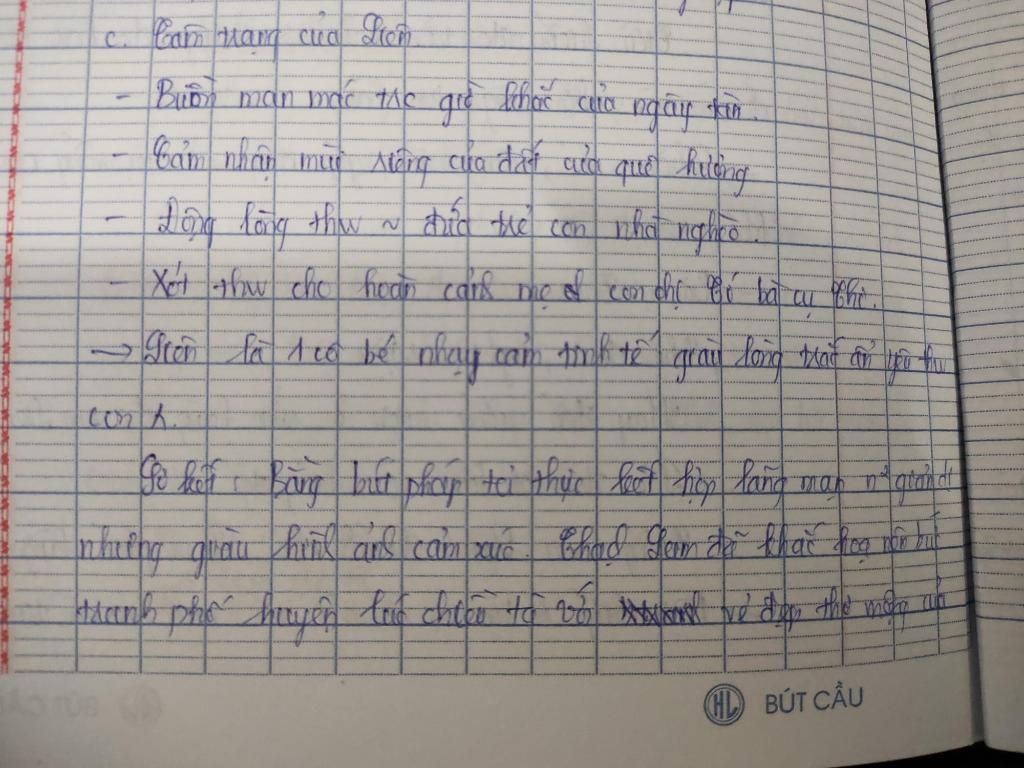 c. Tâm trạng của Liên
- Buồn man mác trc giờ khắc của ngày tàn.
- Cảm nhận mùi riêng của đất của quê hương
- Động lòng thw ~ đứa trẻ con nhà nghèo.
- Xót thw cho hoàn cảnh mẹ con chị Tí bà cụ Thi.
→ Liên là 1 cô bé nhạy cảm tinh tế giàu lòng trắc ẩn yêu thw
con
Sơ kết: Bằng bút pháp tả thực kết hợp lãng mạn n² giản dị
nhưng giàu hình ảnh cảm xúc. Thạch Lam đã khắc hoạ nên bức
tranh phố huyện lúc chiều tà với vẻ đẹp thơ mộng
HL BÚT CẦU